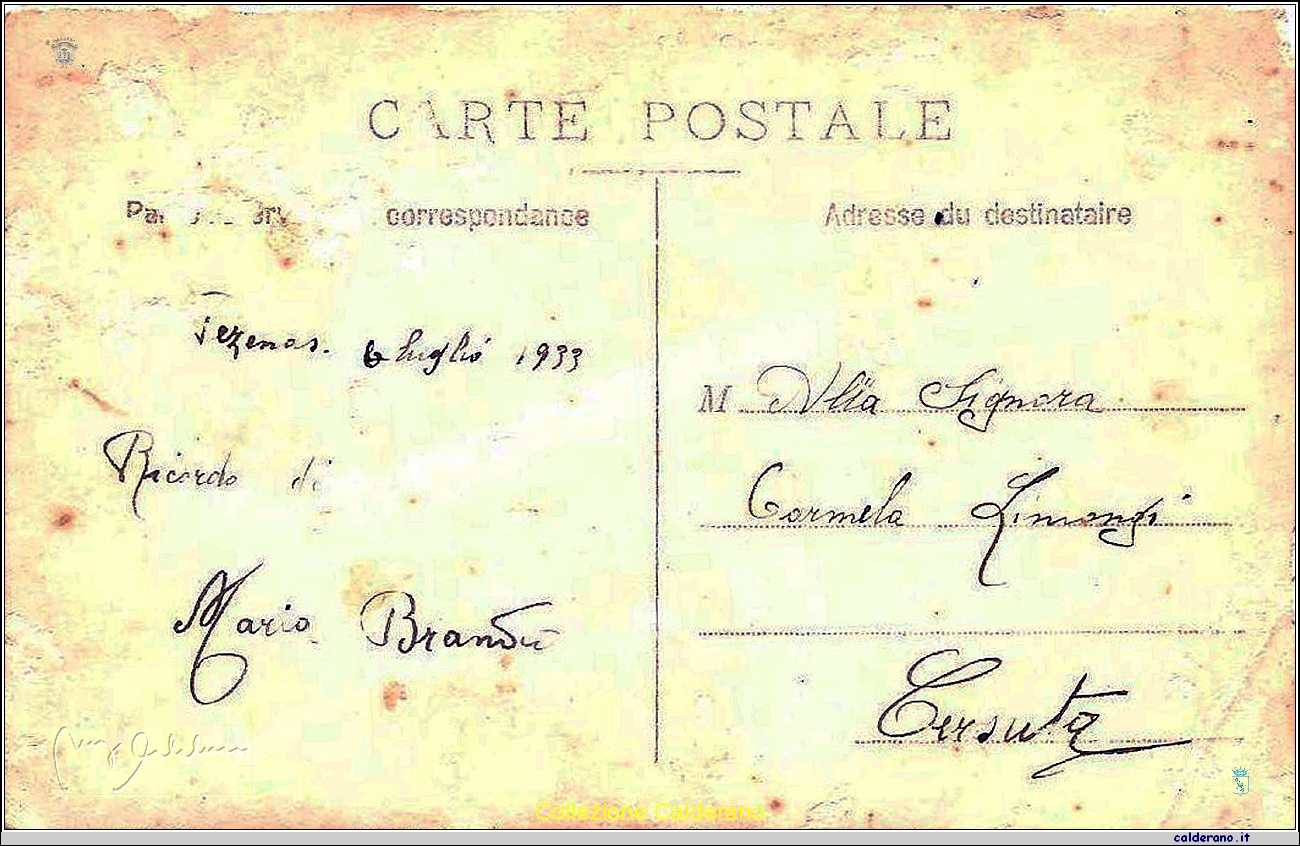 CARTE POSTALE
correspondance
Adresse du destinataire
Tezenas. 6 luglio 1933
Ricordo di
Mario Brandi
M Alla Signora
Carmela Limongi
Cersuta
Collezione Calderano
calderano.it